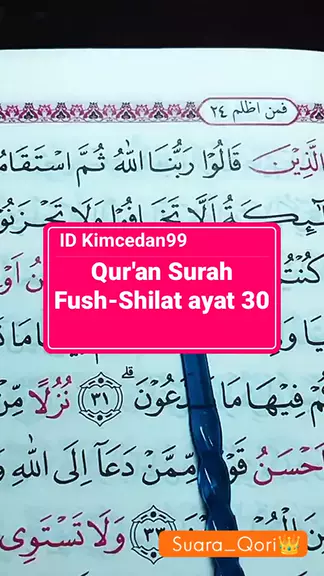 فمن اظلم ٢٤
الَّذِيْنَ قَالُوْا رَبُّنَا اللّٰهُ ثُمَّ اسْتَقَامُ
ىِٕكَةُ اَلَّا تَخَافُوْا وَلَا تَحْزَنُوْ
ID Kimcedan99
كُنْتُ
Qur'an Surah
Fush-Shilat ayat 30
فِيْهَا مَا تَدَّعُوْنَ ۗ ٣١ نُزُلًا مِّنْ
اَحْسَنُ قَوْ مِّمَّنْ دَعَآ اِلَى اللّٰهِ وَ
الْمُ ٣٣ وَلَا تَسْتَوِى
Suara_Qori👑